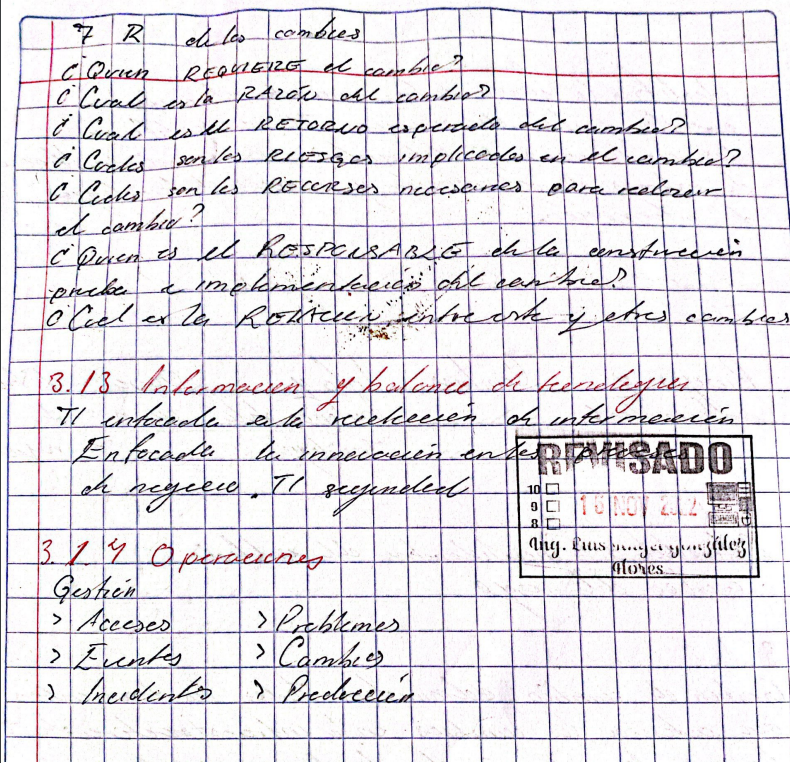 7 R de los cambios
¿Quien REQUIERE el cambio?
¿Cual es la RAZÓN del cambio?
¿Cual es el RETORNO esperado del cambio?
¿Cuales son los RIESGOS implicados en el cambio?
¿Cuales son los RECURSOS necesarios para realizar
el cambio?
¿Quien es el RESPONSABLE de la construcción
prueba e implementación del cambio?
¿Cual es la RELACION entre este y otros cambios
3.13 Informacion y balance de tecnologias
TI enfocada a la recolección de información
Enfocada la innovación en los procesos
de negocio. TI seguridad
REVISADO
10
9
8
Ing. Luis Angel González
Flores
3.1.4 Operaciones
Gestión
> Accesos > Problemas
> Eventos > Cambios
> Incidentes > Producción